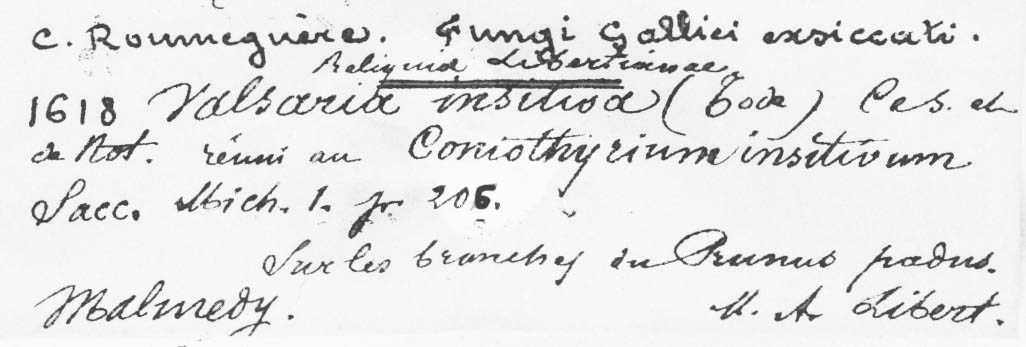 C. Roumeguère. Fungi Gallici exsiccati.
Reliquiæ Libertianae
1618 Valsaria insitiva (Tode) Ces. et
de Not. réuni au Coniothyrium insitivum
Sacc. Mich. 1. p. 206.
Sur les branches du Prunus padus.
Malmedy. M. A. Libert.